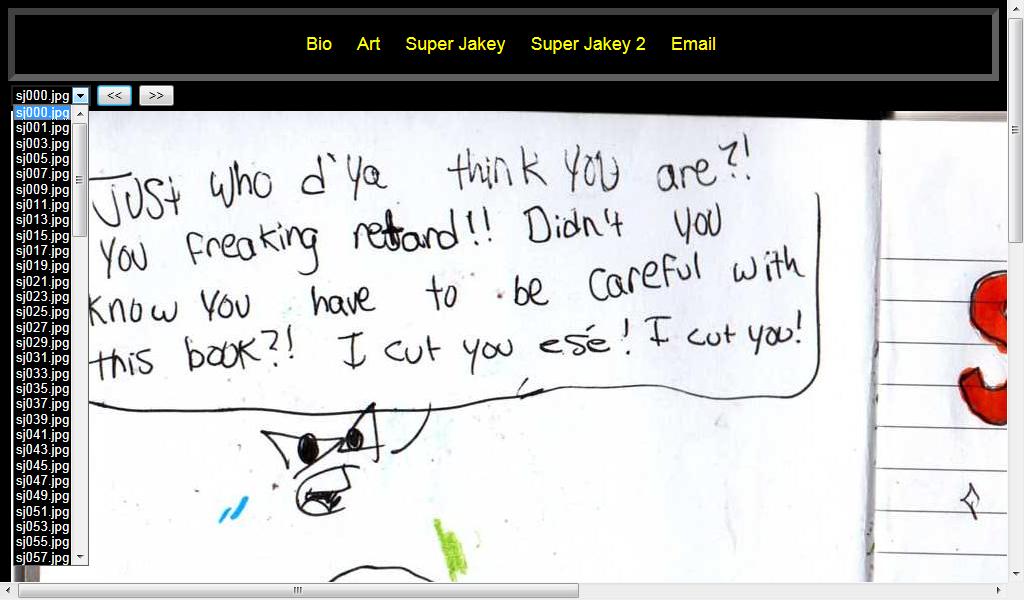 Bio Art Super Jakey Super Jakey 2 Email
sj000.jpg << >>
sj000.jpg
sj001.jpg
sj003.jpg
sj005.jpg
sj007.jpg
sj009.jpg
sj011.jpg
sj013.jpg
sj015.jpg
sj017.jpg
sj019.jpg
sj021.jpg
sj023.jpg
sj025.jpg
sj027.jpg
sj029.jpg
sj031.jpg
sj033.jpg
sj035.jpg
sj037.jpg
sj039.jpg
sj041.jpg
sj043.jpg
sj045.jpg
sj047.jpg
sj049.jpg
sj051.jpg
sj053.jpg
sj055.jpg
sj057.jpg
Just who d'ya think you are?!
You freaking retard!! Didn't you
know you have to be careful with
this book?! I cut you esé! I cut you!
S